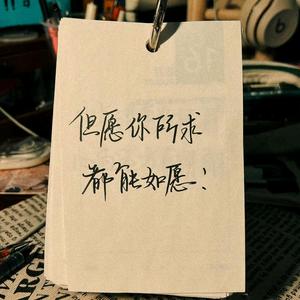 但愿你所求
都能如愿！
16